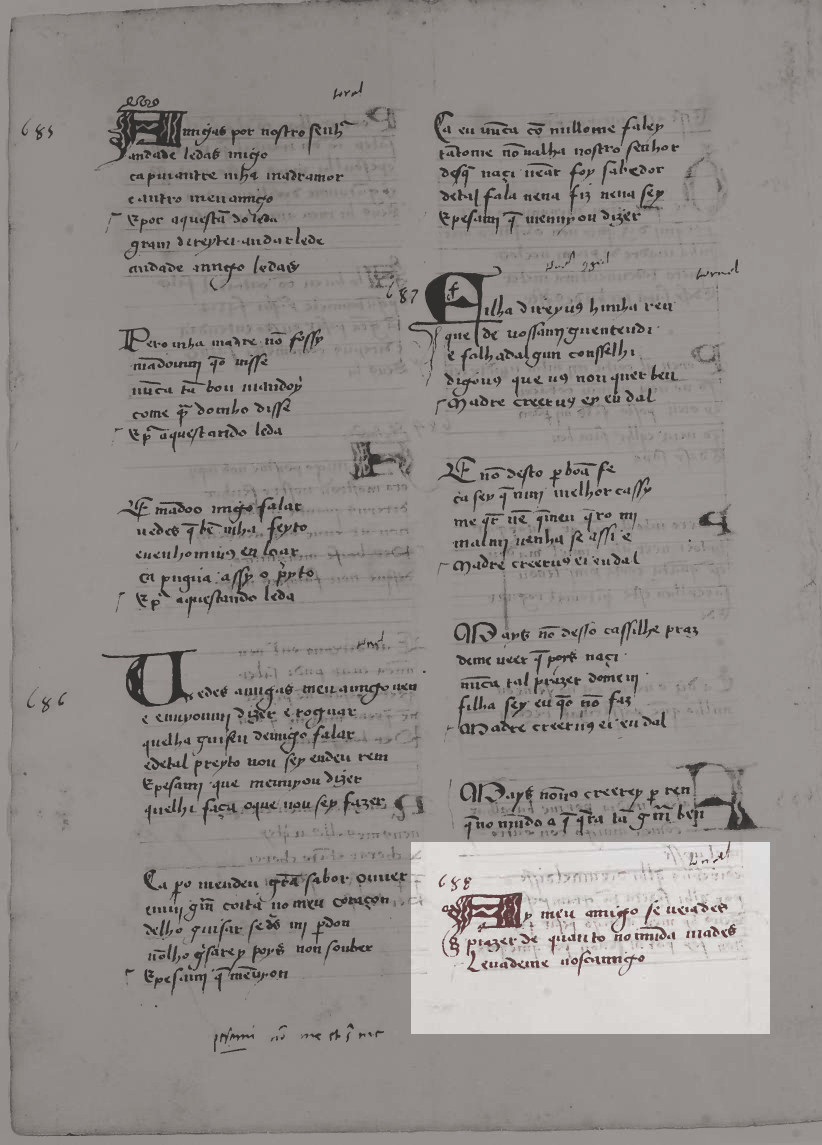 685
Amigas por nostro senhʳ
andade ledas migo
ca puiantre mha madramor
e antro meu amigo
E por aquestā dō leda
gram dereytei andar lede
andade amigo ledas
Pero mha madre nō foss y
mādoumi q̄o visse
nūca tā bon mandoy
come q̄ domho disse
E p̄ aquestando leda
E mādoo migo falar
vedes q̄ bē mha feyto
e venhomiuꝯ en loar
ca pugna assy o p̄yto
E p̄ aquestando leda
686
Vedes amigas meu amigo ven
e enuyoumi dizer e roguar
quelha guiseu demigo falar
e detal preyto non sey endeu rem
E pesami que menuyou dizer
quelhi faça o que nou sey fazer
Ca p̄o mendeu grā sabor ouuer
e mui gm̄ coita no meu coraçon
delho guisar se dꝰ mi p̄don
nōlho gˢsarey poys non souber
E pesami q̄ mēuyon
Ca eu nūca cō nullome faley
tātome nō valha nostro senhor
desq̄ naçi nēar foy sabedor
detal fala nena fiz nena sey
E pesami q̄ menuyou dizer
687
Filha direyuꝯ hunha ren
que de uossamiguentendi
e filhadalgun conselhi
digouꝯ que uꝯ non quer ben
Madre creeruꝯ ey eu dal
E nō desto p̄ boā fe
ca sey q̄ mui melhor ca ssy
me q̄r nē q̄meu q̄ro mi
mal mi uenha se assi e
Madre creeruꝯ ei eu dal
Mays nō desso ca ssilhe praz
deme ueer q̄ poys naçi
nūca tal prazer dome ui
filha sey eu q̄o nō faz
Madre creeruꝯ ei eu dal
Mays nōuꝯ creerey p̄ ren
q̄ no mūdo a q̄ q̄ra tā gm̄ ben
688
Ay meu amigo se ueiades
prazer de quanto no mūda mades
leuademe uoscamigo